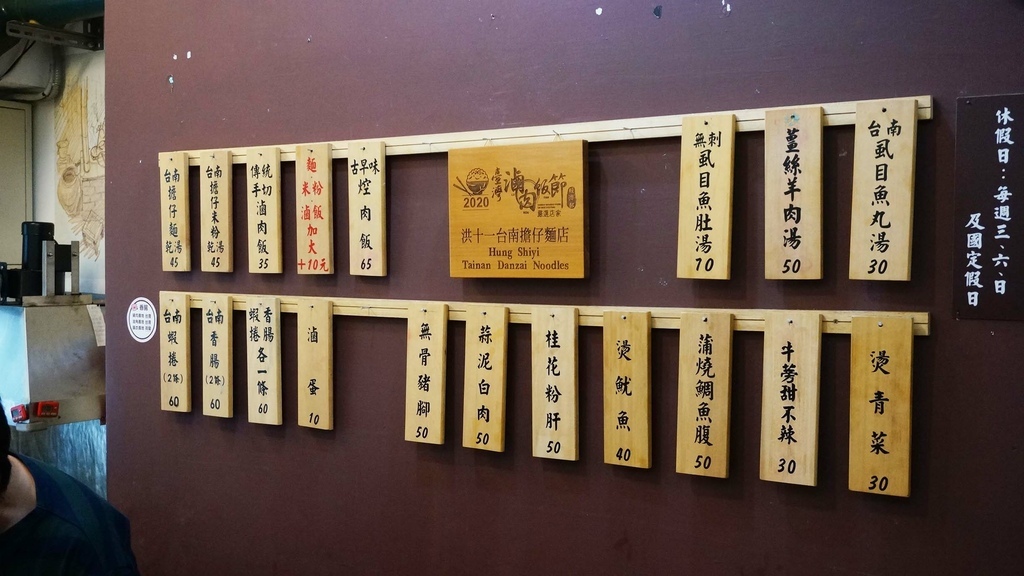 台南擔仔麵 乾湯 45
台南擔仔米粉 乾湯 45
傳統手切滷肉飯 35
麵、米粉、滷飯加大+10元
古早味焢肉飯 65
2020
臺灣滷肉飯節
嚴選店家
洪十一台南擔仔麵店
Hung Shiyi
Tainan Danzai Noodles
無刺虱目魚肚湯 70
薑絲羊肉湯 50
台南虱目魚丸湯 30
台南蝦捲(2條) 60
台南香腸(2條) 60
香腸蝦捲各一條 60
滷蛋 10
無骨豬腳 50
蒜泥白肉 50
桂花粉肝 50
燙魷魚 40
蒲燒鯛魚腹 50
牛蒡甜不辣 30
燙青菜 30
休假日:每週三、六、日
及國定假日